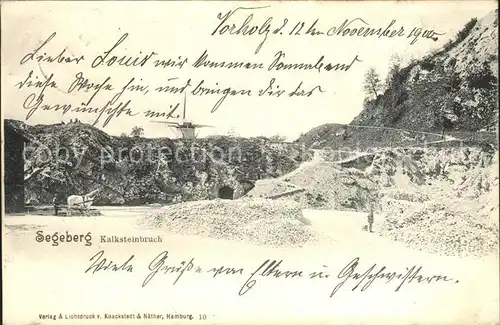 Vorholz d. 12ten November 1900.
Lieber Louis wir kommen Sonnabend
diese Woche hin, und bringen dir das
Gewünschte mit.
Segeberg
Kalksteinbruch
Viele Grüße von Eltern u. Geschwistern.
Verlag & Lichtdruck v. Knackstedt & Näther, Hamburg. 10